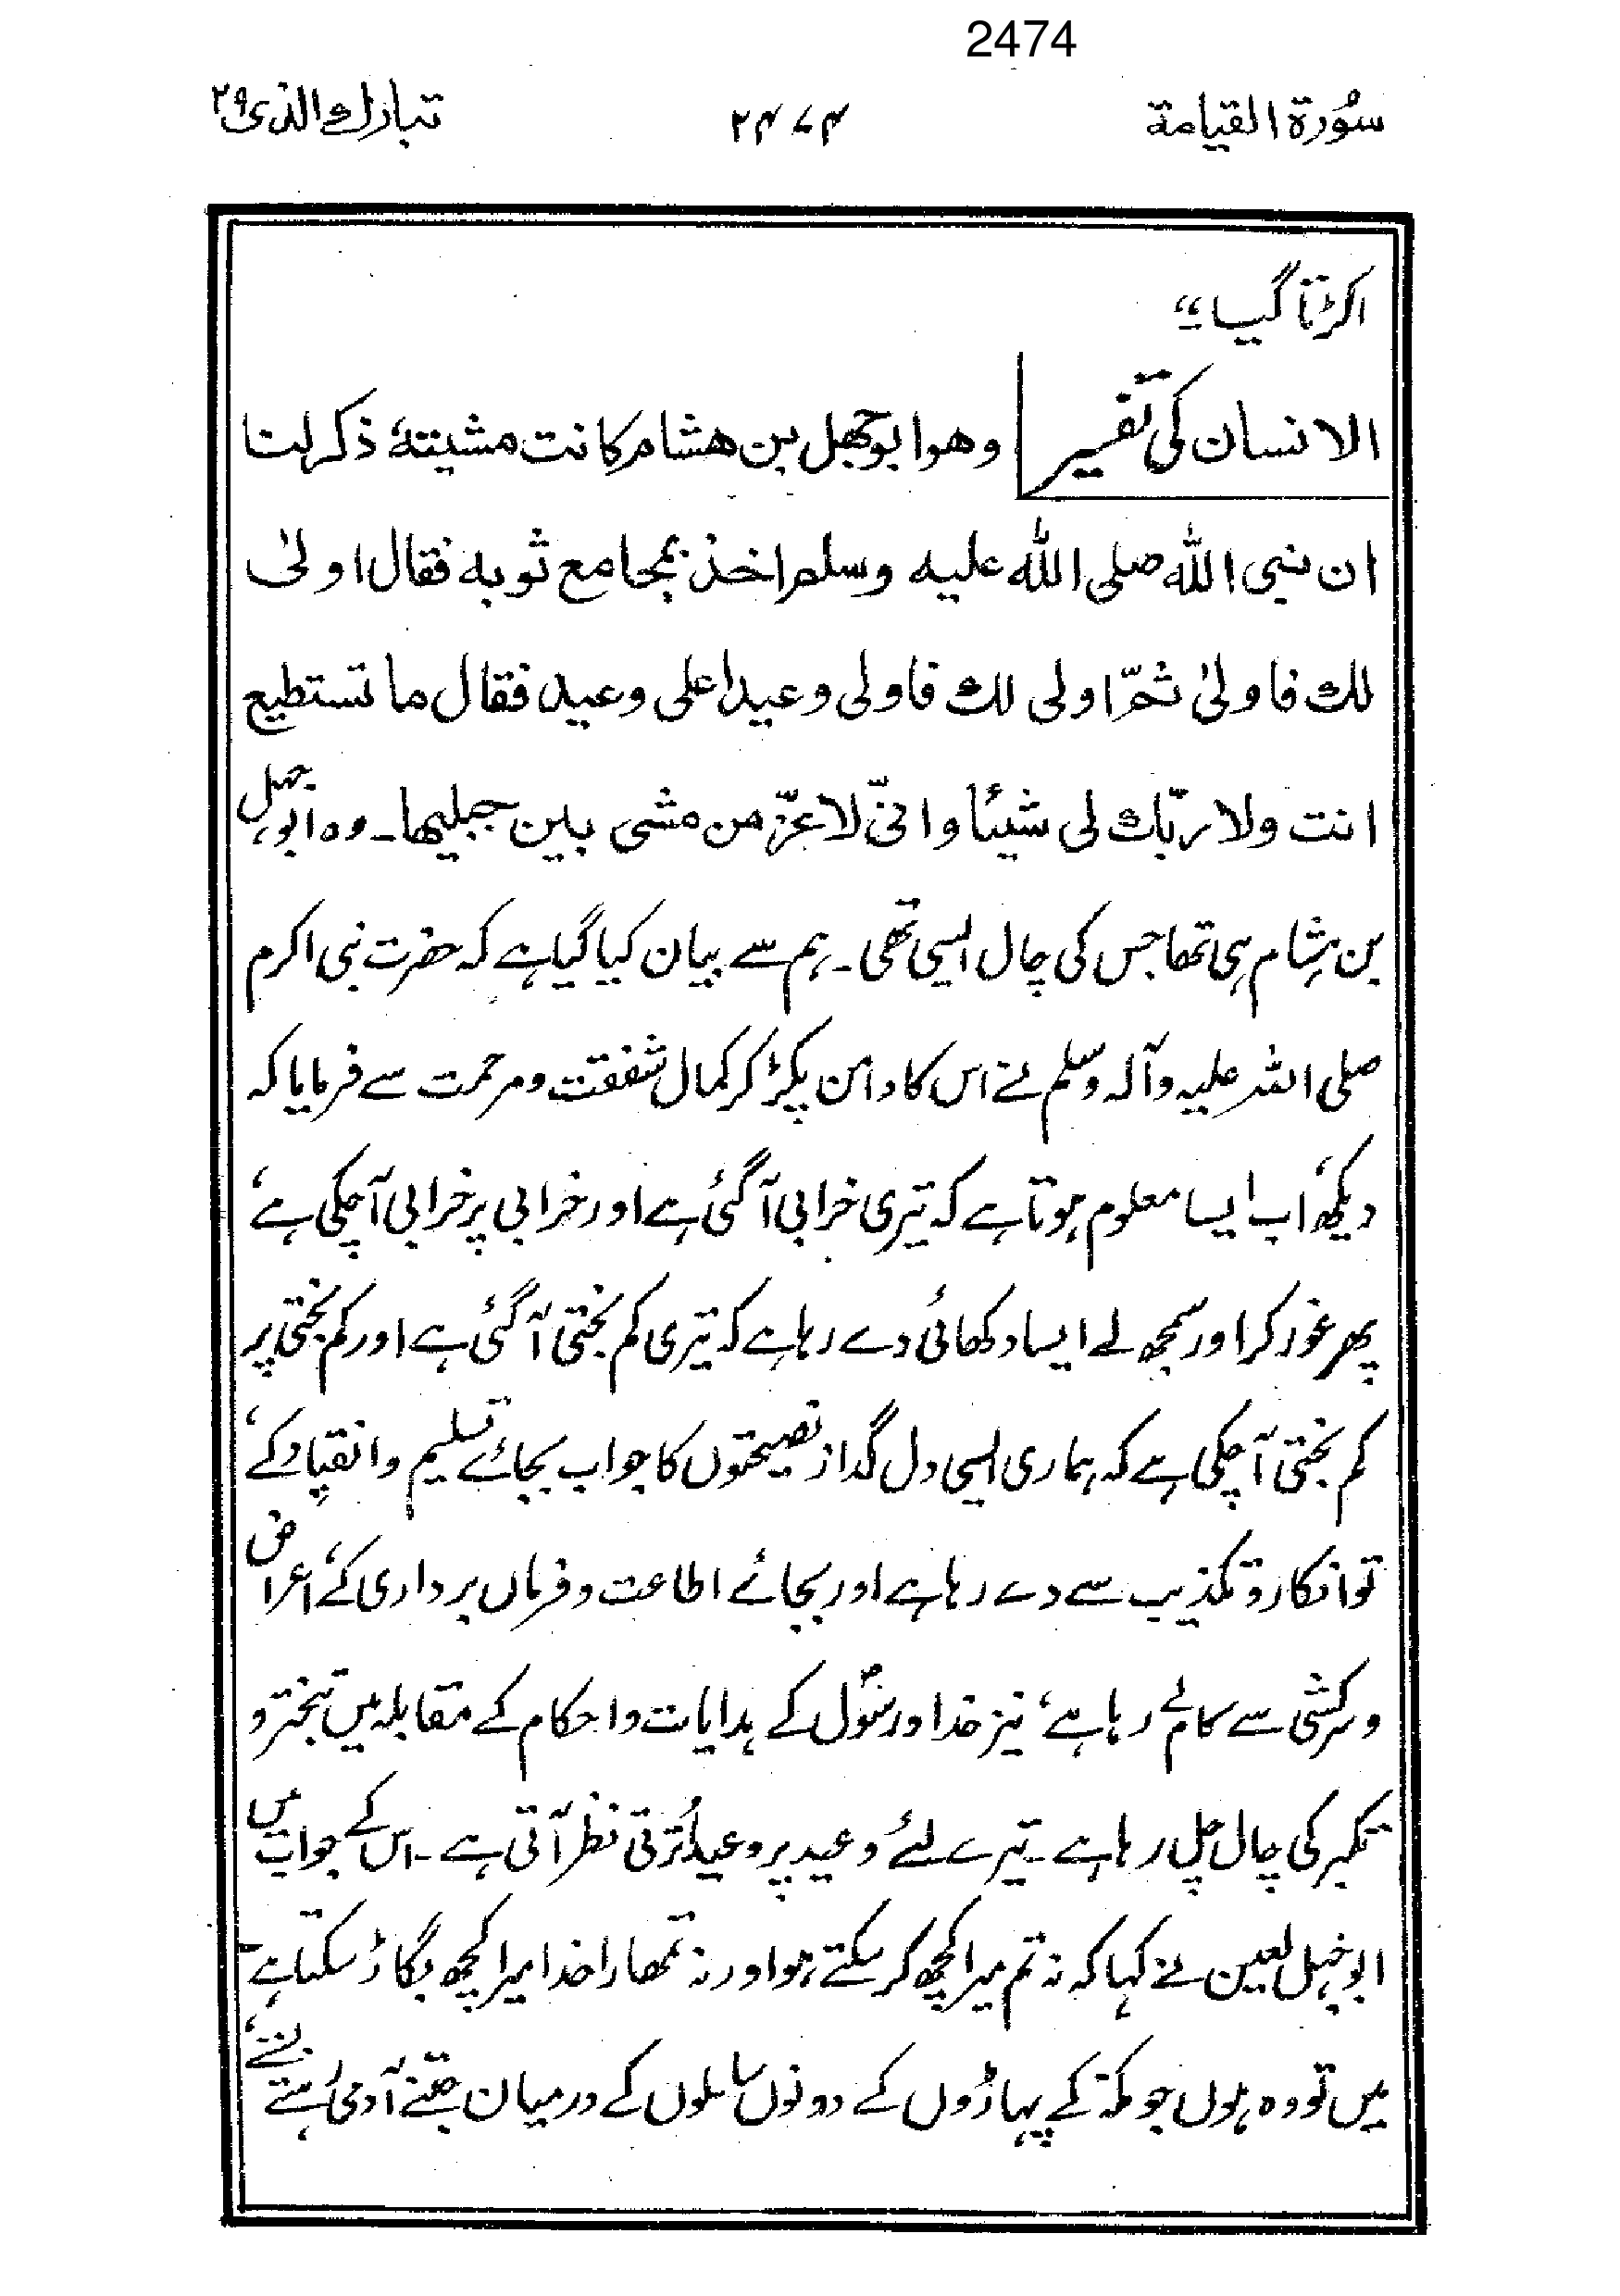 2474
سُورة القيامة ۲۴۷۴ تبارك الذی ۲۹
اکڑتا گیا ؛؛
الانسان کی تفسیر وهوابوجهل بن هشام كانت مشيتهٗ ذكرلنا
ان نبی الله صلی الله علیه وسلم اخذ بمجامع ثوبه فقال اولیٰ
لك فاولیٰ ثمّ اولی لك فاولی وعیدا علی وعید فقال ما تستطیع
انت ولا ربّك لی شیئاً وانّی لاعزّ من مشی بین جبلیها۔ وہ ابوجہل
بن ہشام ہی تھا جس کی چال ایسی تھی۔ ہم سے بیان کیا گیا ہے کہ حضرت نبی اکرم
صلی اللہ علیہ وآلہ وسلم نے اس کا دامن پکڑ کر کمال شفقت ومرحمت سے فرمایا کہ
دیکھ، اب ایسا معلوم ہوتا ہے کہ تیری خرابی آگئی ہے اور خرابی پر خرابی آچکی ہے،
پھر غور کر اور سمجھ لے ایسا دکھائی دے رہا ہے کہ تیری کم بختی آگئی ہے اور کم بختی پر
کم بختی آچکی ہے کہ ہماری ایسی دل گداز نصیحتوں کا جواب بجائے تسلیم وانقیاد کے،
تو انکار وتکذیب سے دے رہا ہے اور بجائے اطاعت وفرماں برداری کے، اعراض
وسرکشی سے کام لے رہا ہے، نیز خدا ورسُول کے ہدایات واحکام کے مقابلہ میں تبختر و
تکبر کی چال چل رہا ہے۔ تیرے لئے وعید پر وعید اُترتی نظر آتی ہے۔ اس کے جواب میں
ابوجہل لعین نے کہا کہ نہ تم میرا کچھ کر سکتے ہو اور نہ تمھارا خدا میرا کچھ بگاڑ سکتا ہے۔
میں تو وہ ہوں جو مکہ کے پہاڑوں کے دونوں سلسلوں کے درمیان جتنے آدمی رہتے بستے،